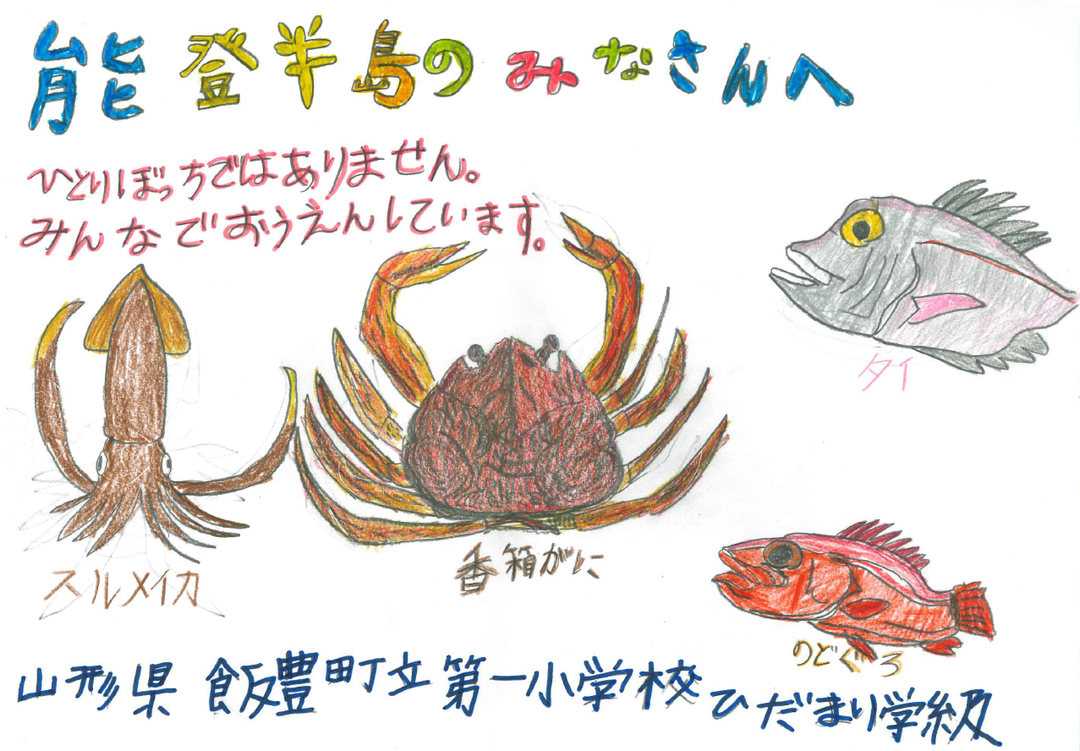 能登半島のみなさんへ
ひとりぼっちではありません。
みんなでおうえんしています。
タイ
スルメイカ
香箱がに
のどぐろ
山形県 飯豊町立 第一小学校 ひだまり学級